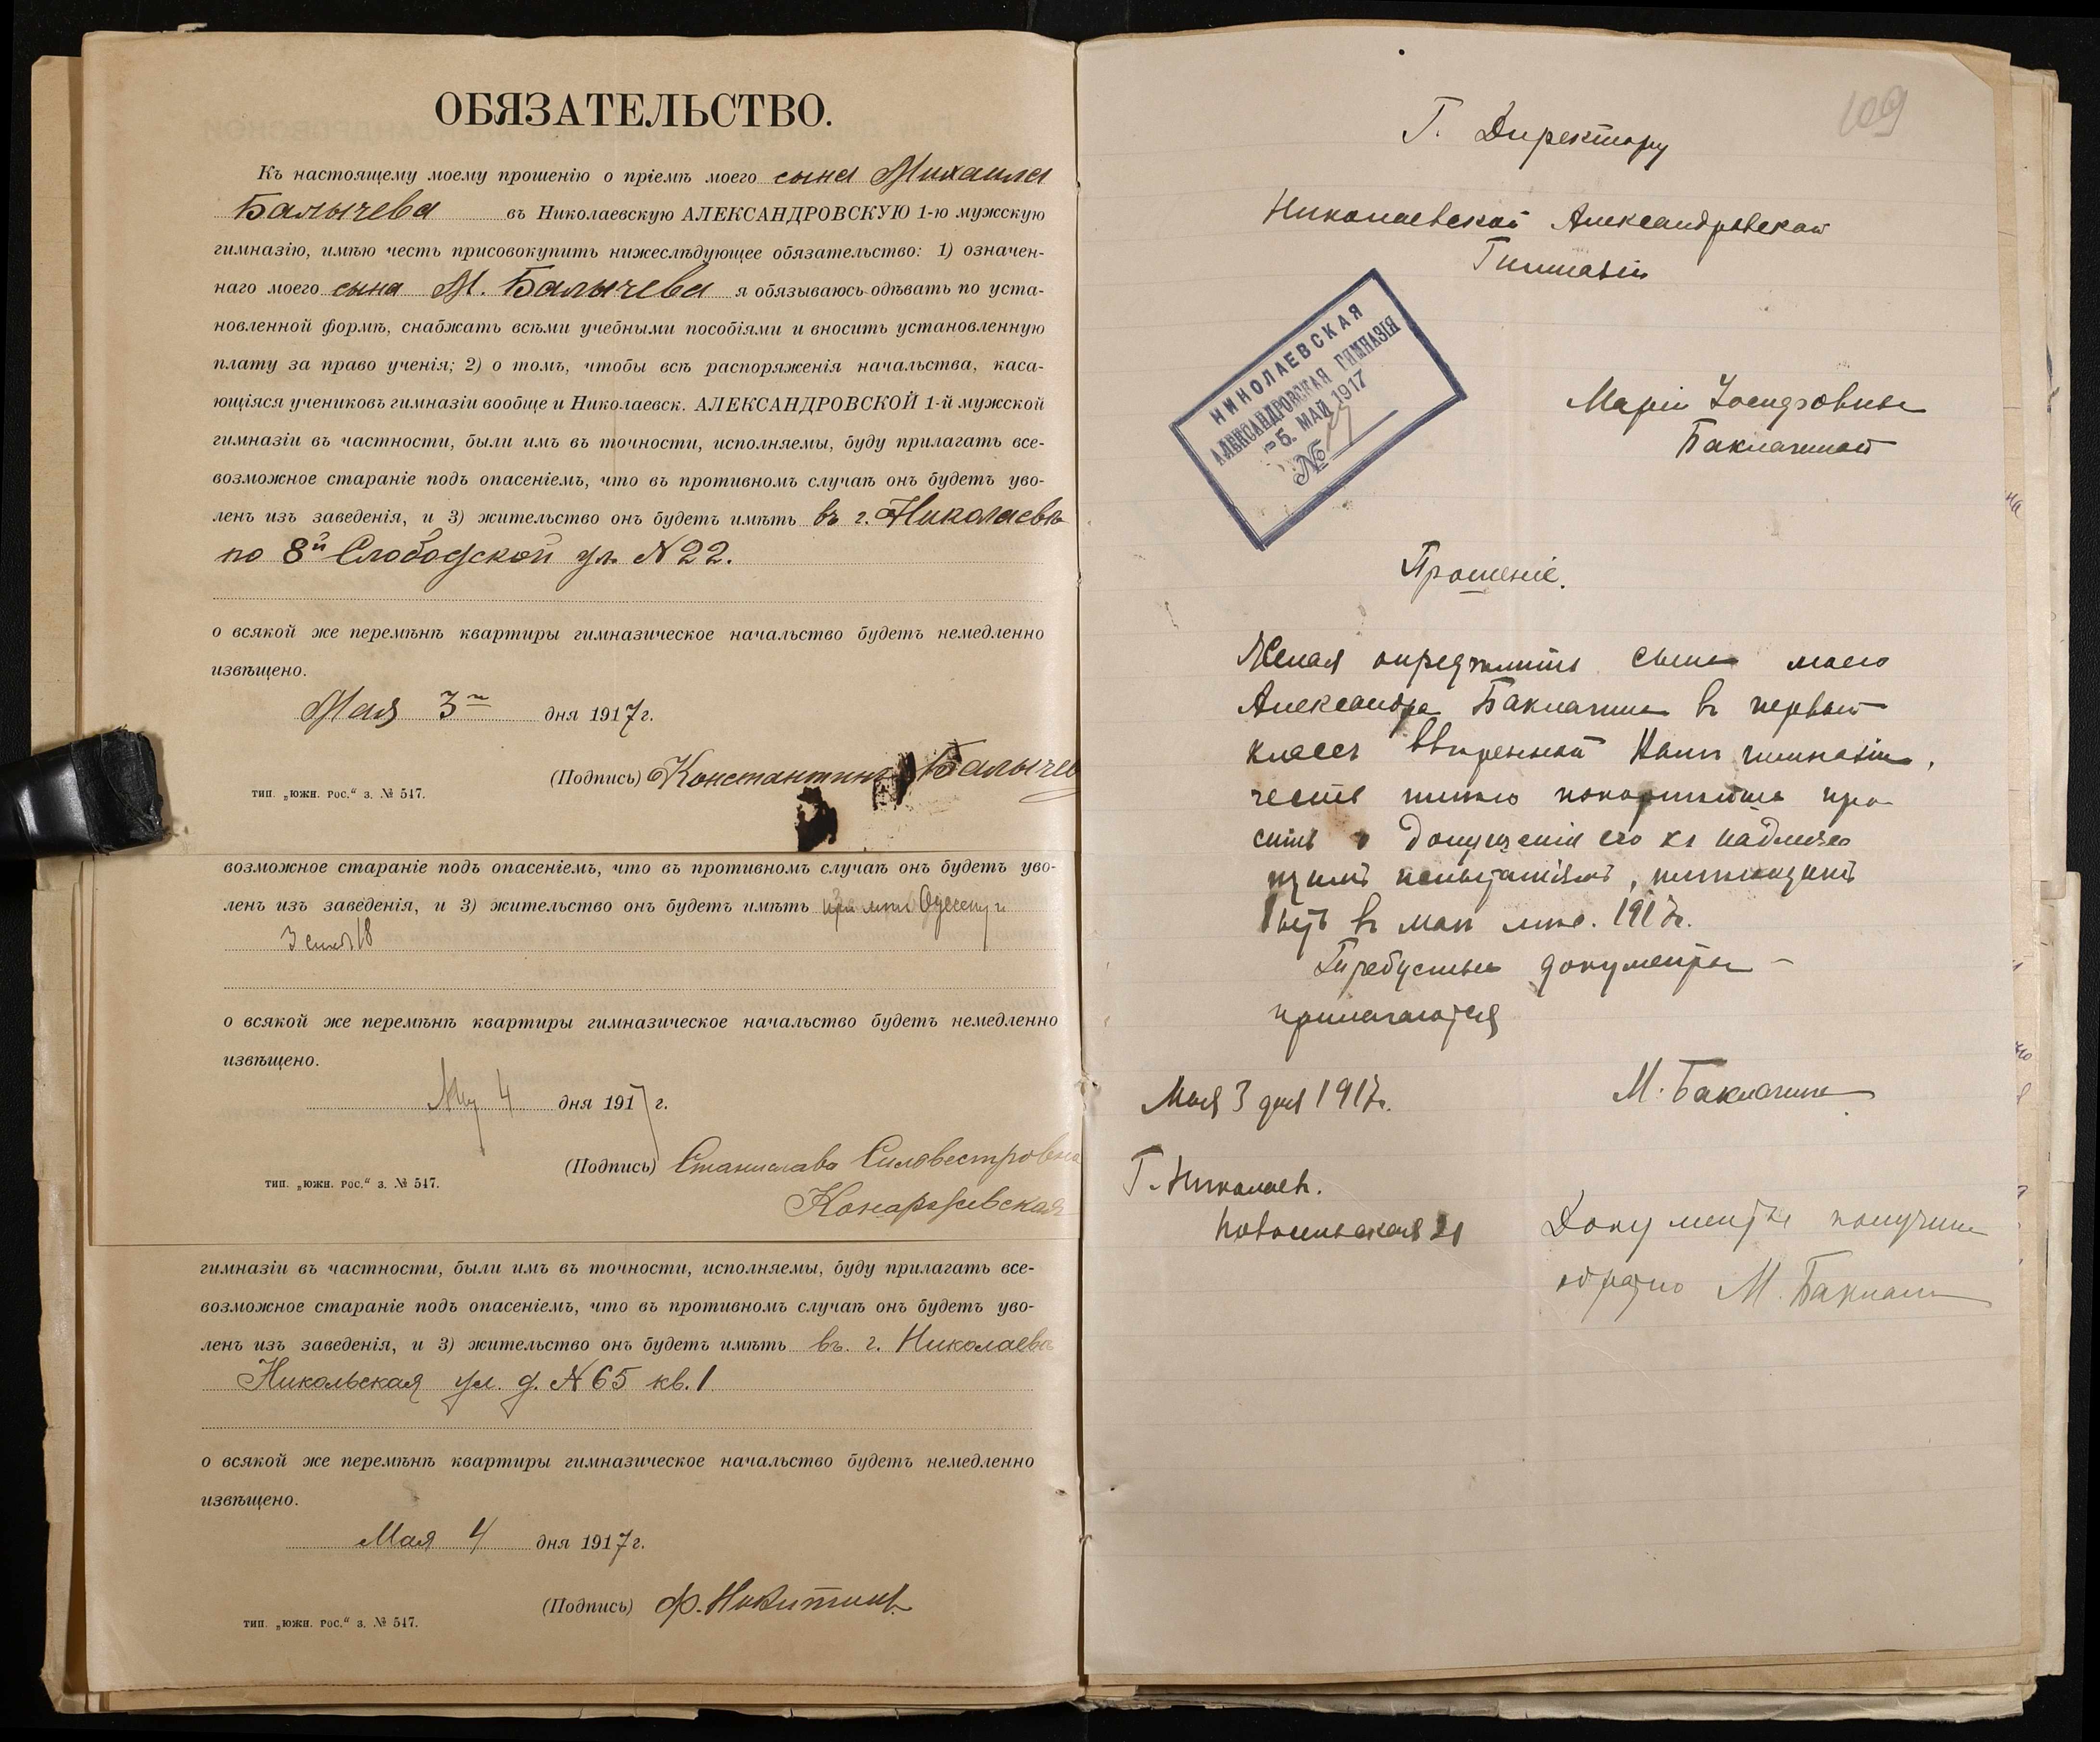 ОБЯЗАТЕЛЬСТВО.
Къ настоящему моему прошенію о пріемѣ моего сына Михаила
Балычева въ Николаевскую АЛЕКСАНДРОВСКУЮ 1-ю мужскую
гимназію, имѣю честь присовокупить нижеслѣдующее обязательство: 1) означен-
наго моего сына М. Балычева я обязываюсь одѣвать по уста-
новленной формѣ, снабжать всѣми учебными пособіями и вносить установленную
плату за право ученія; 2) о томъ, чтобы всѣ распоряженія начальства, каса-
ющіяся учениковъ гимназіи вообще и Николаевск. АЛЕКСАНДРОВСКОЙ 1-й мужской
гимназіи въ частности, были имъ въ точности, исполняемы, буду прилагать все-
возможное стараніе подъ опасеніемъ, что въ противномъ случаѣ онъ будетъ уво-
ленъ изъ заведенія, и 3) жительство онъ будетъ имѣть въ г. Николаевѣ
по 8й Слободской ул. N 22.
о всякой же перемѣнѣ квартиры гимназическое начальство будетъ немедленно
извѣщено.
Мая 3го дня 1917 г.
(Подпись) Константинъ Балычев
тип. „южн. рос.“ з. № 547.
возможное стараніе подъ опасеніемъ, что въ противномъ случаѣ онъ будетъ уво-
ленъ изъ заведенія, и 3) жительство онъ будетъ имѣть при мнѣ
18
о всякой же перемѣнѣ квартиры гимназическое начальство будетъ немедленно
извѣщено.
4 дня 1917 г.
(Подпись) Станислава Сильвестровна
тип. „южн. рос.“ з. № 547.
гимназіи въ частности, были имъ въ точности, исполняемы, буду прилагать все-
возможное стараніе подъ опасеніемъ, что въ противномъ случаѣ онъ будетъ уво-
ленъ изъ заведенія, и 3) жительство онъ будетъ имѣть въ. г. Николаевѣ
Никольская ул. д. N 65 кв. 1
о всякой же перемѣнѣ квартиры гимназическое начальство будетъ немедленно
извѣщено.
Мая 4 дня 1917 г.
(Подпись) Ф. Никитинъ
тип. „южн. рос.“ з. № 547.
109
Г. Директору
Николаевской Александровской
Гимназіи
НИКОЛАЕВСКАЯ
АЛЕКСАНДРОВСКАЯ ГИМНАЗІЯ
5. МАЙ 1917
№
Маріи
Баклагиной
Прошеніе.
Желая опредѣлить сына моего
Александра Баклагина въ первый
классъ ввѣренной Вамъ гимназіи,
честь имѣю покорнѣйше про-
сить о допущеніи его къ надлежа
щимъ испытаніямъ, имѣющимъ
быть въ маѣ мѣс. 1917 г.
Требуемые документы
прилагаются
Мая 3 дня 1917 г.
М. Баклагина
Г. Николаев.
21
Документы получила
обратно М. Баклагин